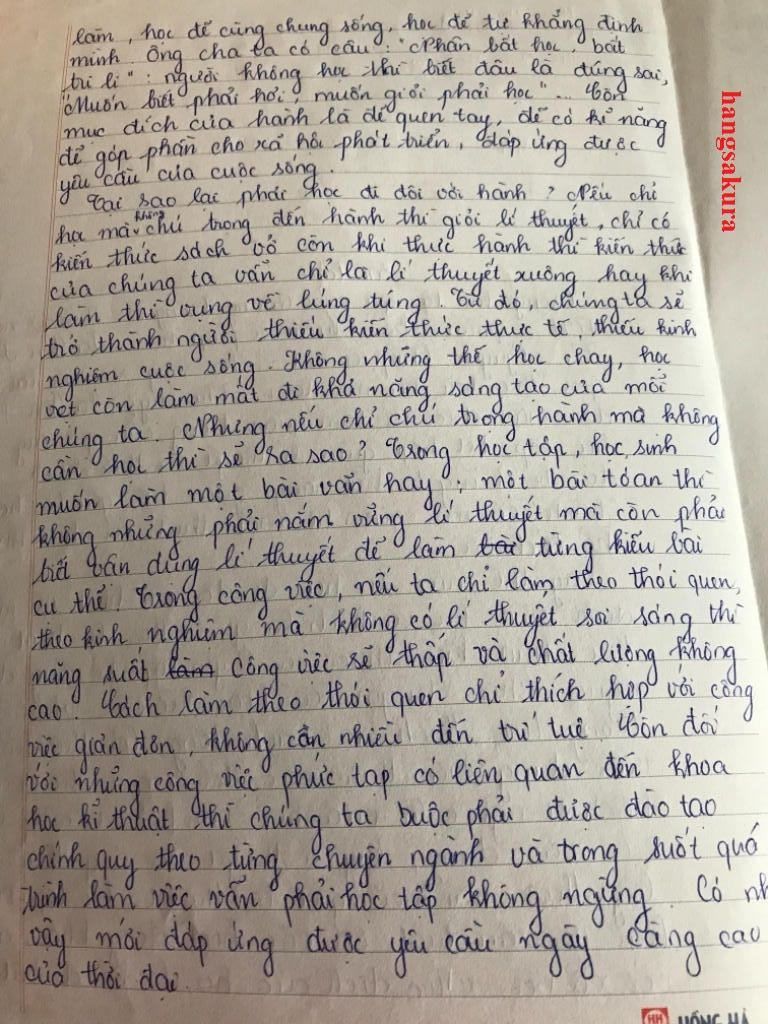 làm, học để cùng chung sống, học để tự khẳng định
mình. Ông cha ta có câu: "Nhân bất học, bất
tri lí": người không học thì biết đâu là đúng sai,
"Muốn biết phải hỏi, muốn giỏi phải học"... Còn
mục đích của hành là để quen tay, để có kĩ năng
để góp phần cho xã hội phát triển, đáp ứng được
yêu cầu của cuộc sống.
Tại sao lại phải học đi đôi với hành? Nếu chỉ
học mà không chú trọng đến hành thì giỏi lí thuyết, chỉ có
kiến thức sách vở còn khi thực hành thì kiến thức
của chúng ta vẫn chỉ là lí thuyết xuông hay khi
làm thì vụng về lúng túng. Từ đó, chúng ta sẽ
trở thành người thiếu kiến thức thực tế, thiếu kinh
nghiệm cuộc sống. Không những thế học chay, học
vẹt còn làm mất đi khả năng sáng tạo của mỗi
chúng ta. Nhưng nếu chỉ chú trọng hành mà không
cần học thì sẽ ra sao? Trong học tập, học sinh
muốn làm một bài văn hay, một bài toán thì
không những phải nắm vững lí thuyết mà còn phải
biết vận dụng lí thuyết để làm bài từng kiểu bài
cụ thể. Trong công việc, nếu ta chỉ làm theo thói quen,
theo kinh nghiệm mà không có lí thuyết soi sáng thì
năng suất làm công việc sẽ thấp và chất lượng không
cao. Cách làm theo thói quen chỉ thích hợp với công
việc giản đơn, không cần nhiều đến trí tuệ. Còn đối
với những công việc phức tạp có liên quan đến khoa
học kĩ thuật thì chúng ta buộc phải được đào tạo
chính quy theo từng chuyên ngành và trong suốt quá
trình làm việc vẫn phải học tập không ngừng. Có nh
vậy mới đáp ứng được yêu cầu ngày càng cao
của thời đại.
hangsakura
HH HỒNG HÀ